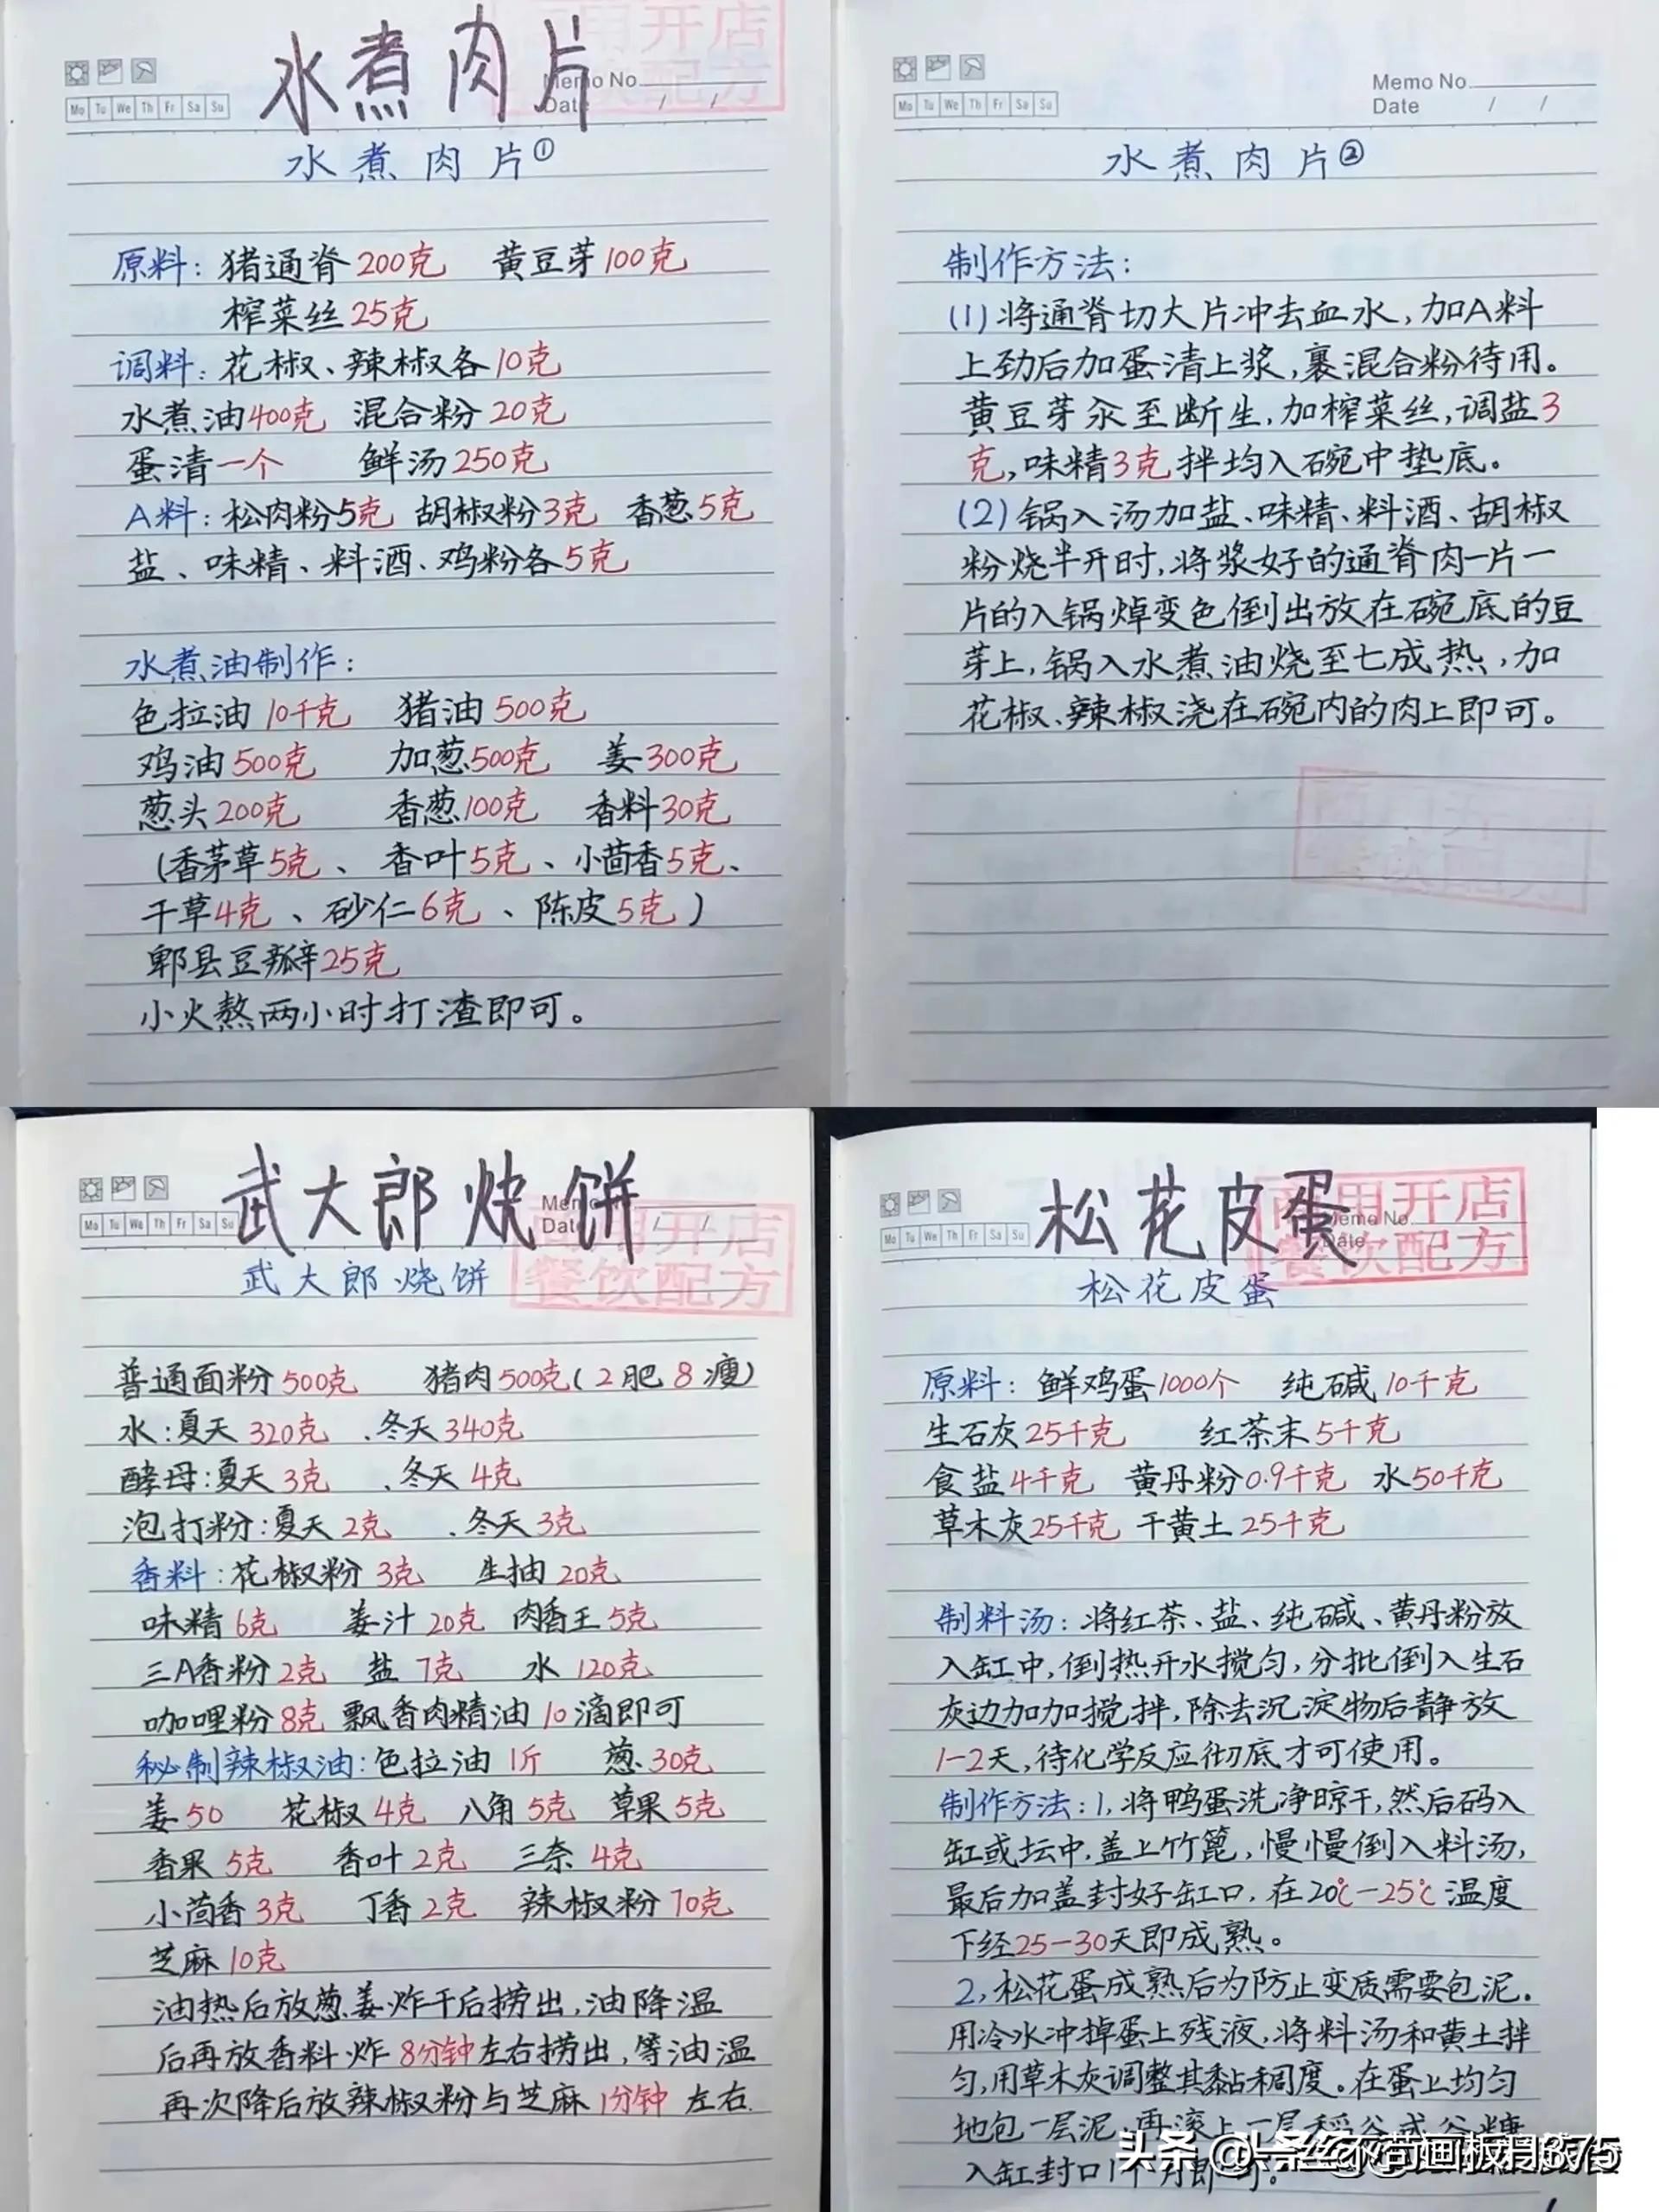 水煮肉片
Memo No.
Mo Tu We Th Fr Sa Su
Date / /
水煮肉片①
原料：猪通脊200克 黄豆芽100克
榨菜丝25克
调料：花椒、辣椒各10克
水煮油400克 混合粉20克
蛋清一个 鲜汤250克
A料：松肉粉5克 胡椒粉3克 香葱5克
盐、味精、料酒、鸡粉各5克
水煮油制作：
色拉油10千克 猪油500克
鸡油500克 加葱500克 姜300克
葱头200克 香葱100克 香料30克
(香茅草5克、香叶5克、小茴香5克、
干草4克、砂仁6克、陈皮5克)
郫县豆瓣25克
小火熬两小时打渣即可。
Memo No.
Mo Tu We Th Fr Sa Su
Date / /
水煮肉片②
制作方法：
(1)将通脊切大片冲去血水,加A料
上劲后加蛋清上浆,裹混合粉待用。
黄豆芽汆至断生,加榨菜丝,调盐3
克,味精3克拌均入碗中垫底。
(2)锅入汤加盐、味精、料酒、胡椒
粉烧半开时,将浆好的通脊肉一片一
片的入锅焯变色倒出放在碗底的豆
芽上,锅入水煮油烧至七成热,加
花椒、辣椒浇在碗内的肉上即可。
商用开店
餐饮配方
武大郎烧饼
Mo Tu We Th Fr Sa Su
Date / /
商用开店
餐饮配方
武大郎烧饼
普通面粉500克 猪肉500克(2肥8瘦)
水:夏天320克、冬天340克
酵母:夏天3克、冬天4克
泡打粉:夏天2克、冬天3克
香料:花椒粉3克 生抽20克
味精6克 姜汁20克 肉香王5克
三A香粉2克 盐7克 水120克
咖哩粉8克 飘香肉精油10滴即可
秘制辣椒油:色拉油1斤 葱30克
姜50 花椒4克 八角5克 草果5克
香果5克 香叶2克 三奈4克
小茴香3克 丁香2克 辣椒粉70克
芝麻10克
油热后放葱姜炸干后捞出,油降温
后再放香料炸8分钟左右捞出,等油温
再次降后放辣椒粉与芝麻1分钟左右.
松花皮蛋
Memo No.
Mo Tu We Th Fr Sa Su
Date
商用开店
餐饮配方
松花皮蛋
原料：鲜鸡蛋1000个 纯碱10千克
生石灰25千克 红茶末5千克
食盐4千克 黄丹粉0.9千克 水50千克
草木灰25千克 干黄土25千克
制料汤：将红茶、盐、纯碱、黄丹粉放
入缸中,倒热开水搅匀,分批倒入生石
灰边加加搅拌,除去沉淀物后静放
1-2天,待化学反应彻底才可使用。
制作方法:1,将鸭蛋洗净晾干,然后码入
缸或坛中,盖上竹篦,慢慢倒入料汤,
最后加盖封好缸口,在20℃-25℃温度
下经25-30天即成熟。
2,松花蛋成熟后为防止变质需要包泥.
用冷水冲掉蛋上残液,将料汤和黄土拌
匀,用草木灰调整其黏稠度。在蛋上均匀
地包一层泥,再滚上一层稻谷或谷糠
入缸封口1个月即可。
头条